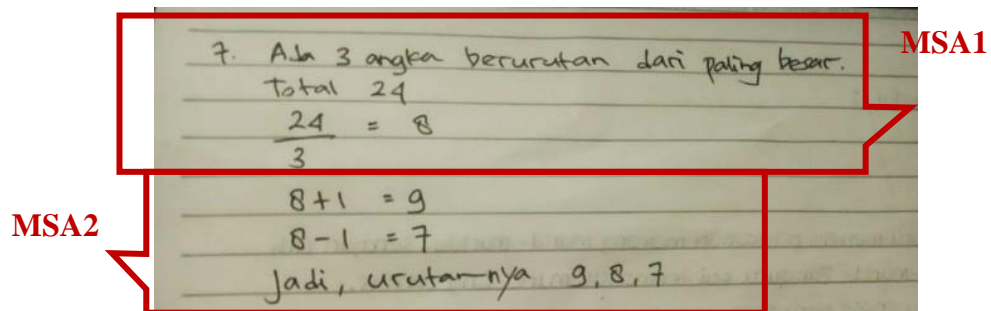 MSA1
7. Ada 3 angka berurutan dari paling besar.
Total 24
24 = 8
3
MSA2
8+1 = 9
8-1 = 7
Jadi, urutan-nya 9, 8, 7